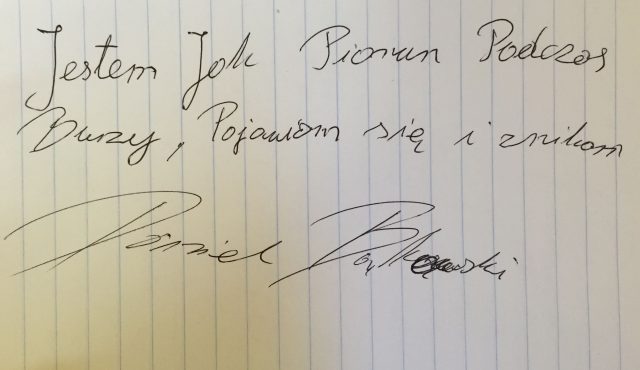 Jestem Jak Piorun Podczas
Burzy, Pojawiam się i znikam
Daniel